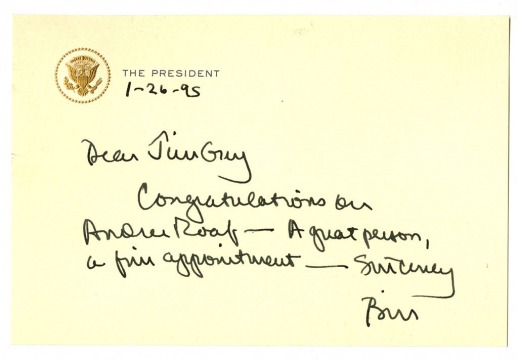 THE PRESIDENT
1-26-95
Dear Jim Guy
Congratulations on
Andree Roaf — A great person,
a fine appointment — Sincerely
Bill